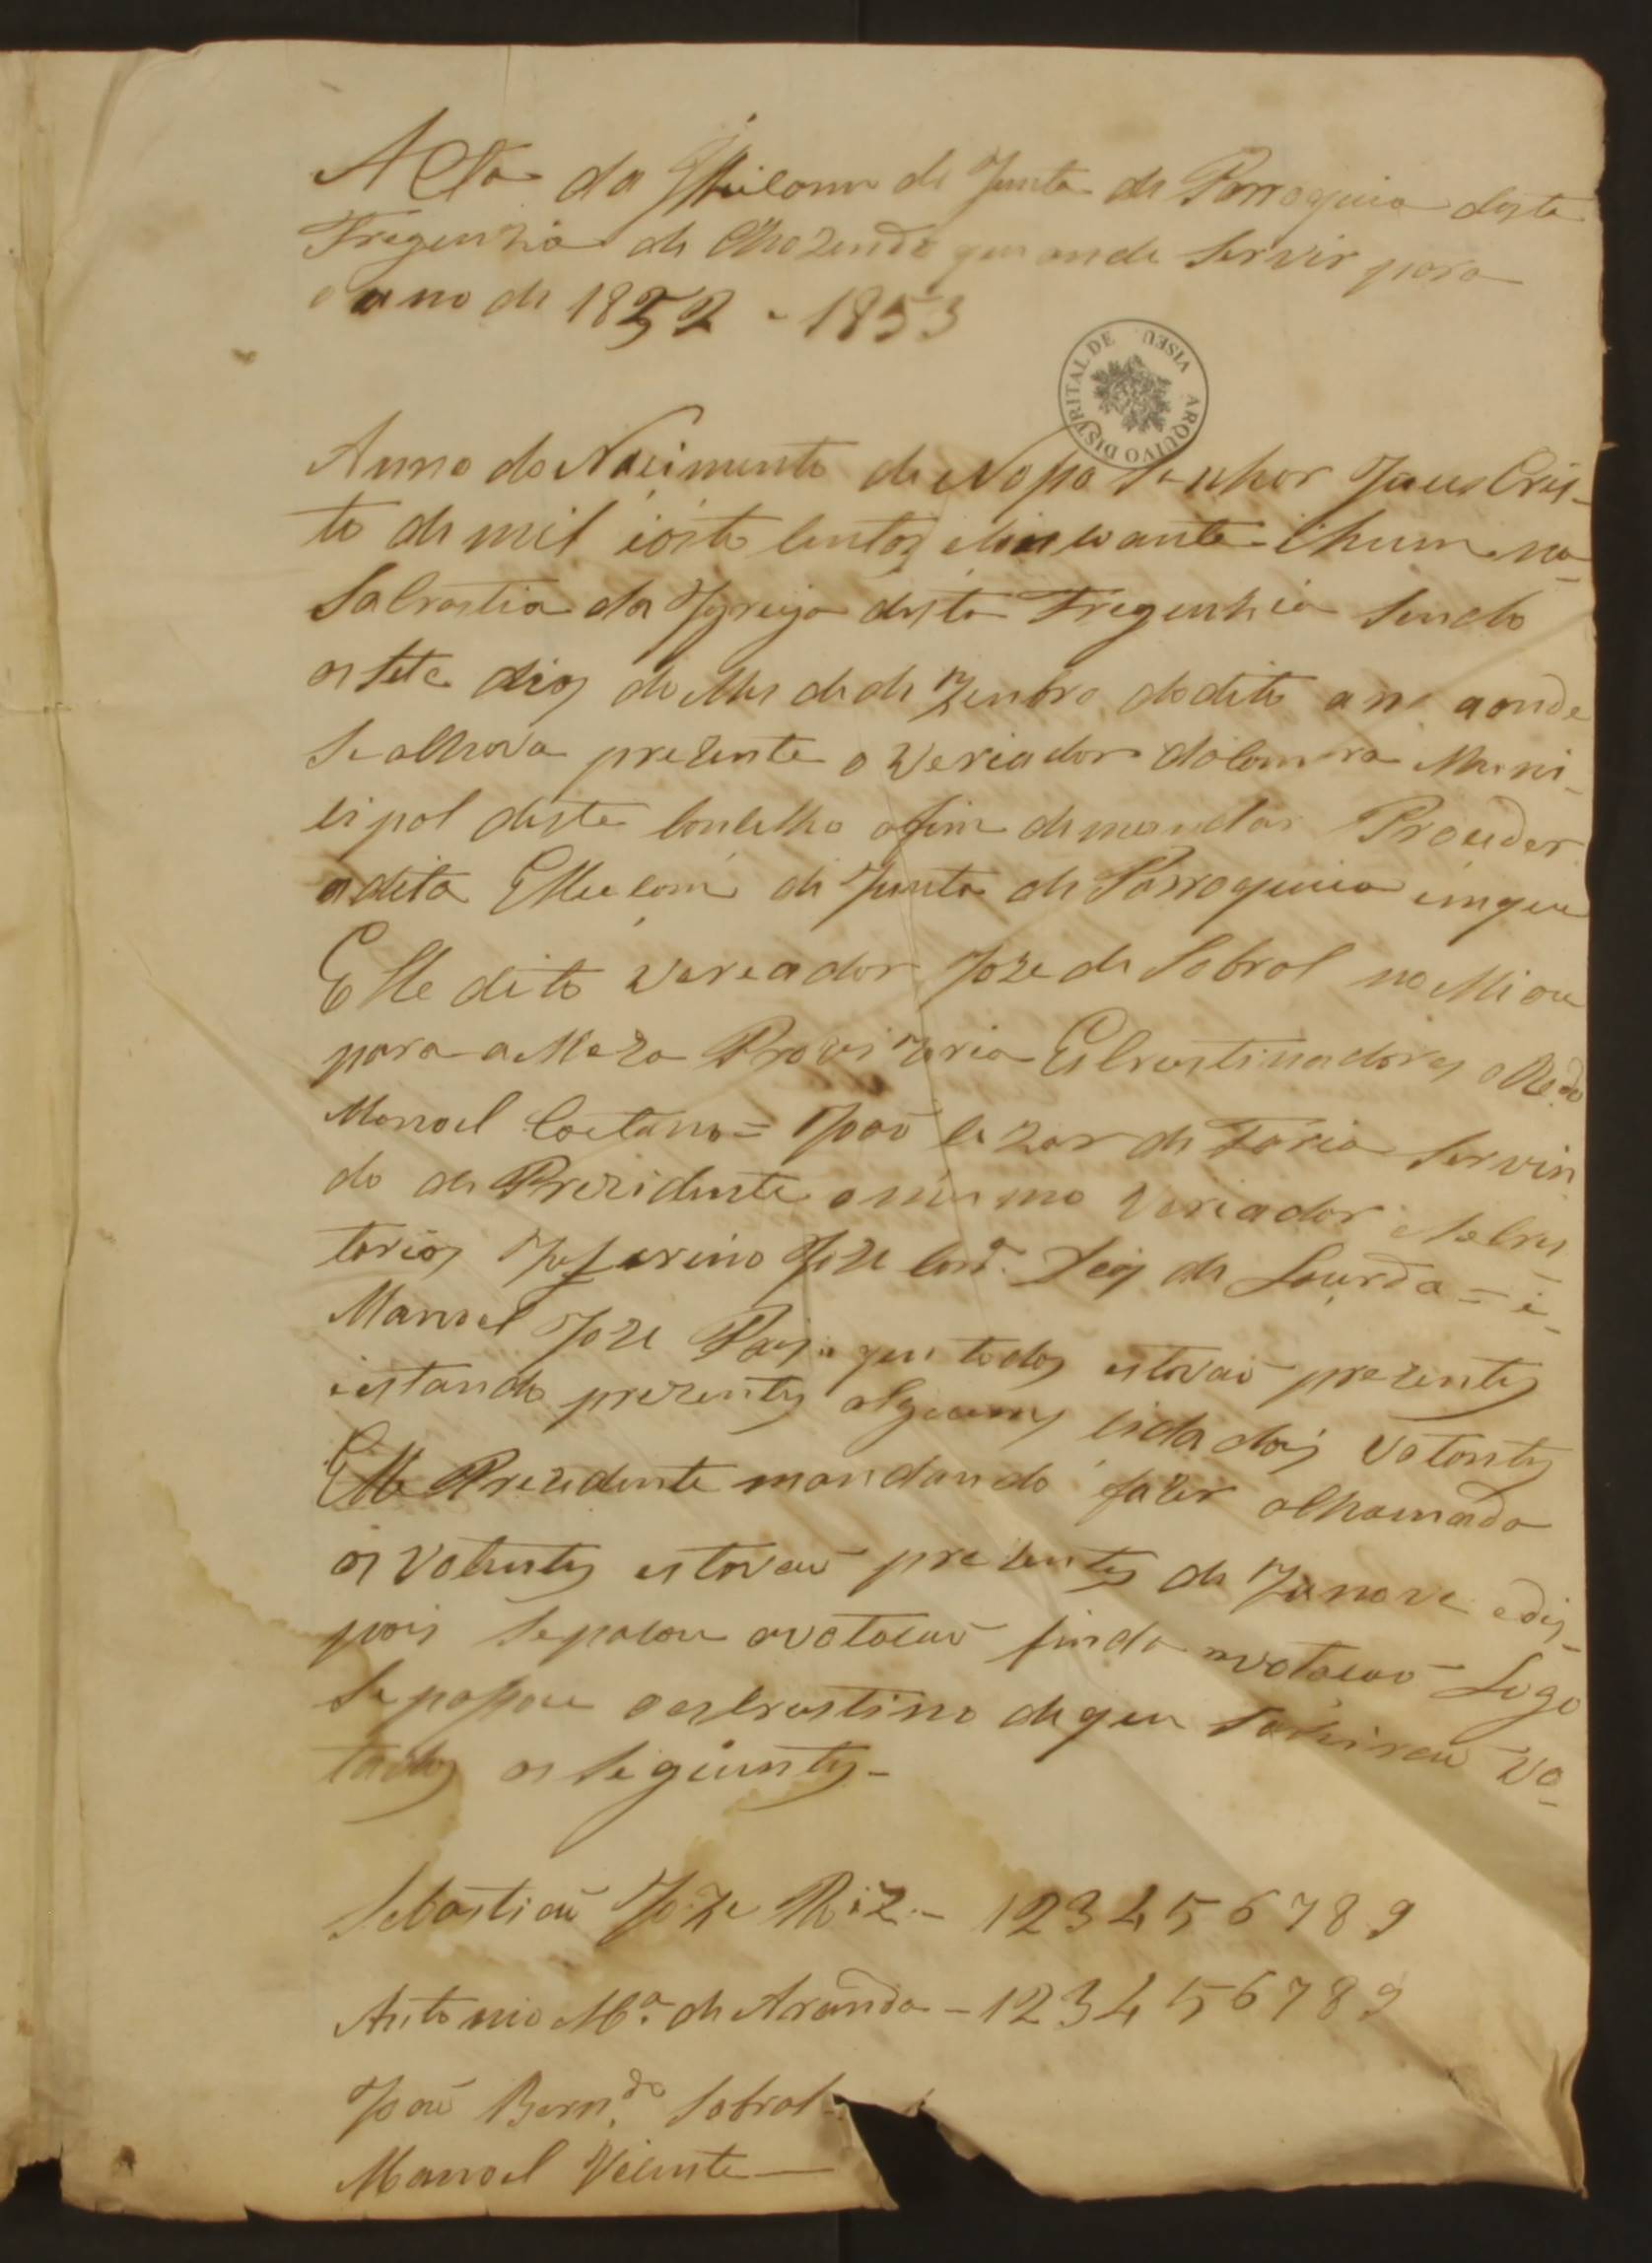 Acta da Elleicam de Junta de Parroquia desta
Freguezia de Chozendo que an de Servir para
o anno de 1852 e 1853
ARQUIVO DISTRITAL DE VISEU
Anno do Nacimento de Nosso Senhor Jezus Cris-
to de mil ioito centos e cincoanta i hum na
Sacrastia da Igreija desta Freguezia Sendo
os sete dias do Mes de de Zenbro do dito ano aonde
Se achava prezente o Veriador da Camara Muni-
cipal deste Concelho afim de mandar Proceder
a dita Elleicam de Junta de Parroquia em que
Elle dito Vereador Joze de Sobral no Miou
para a Meza Provizoria Escrustinadores o Re.do
Manoel Caetano = João Cezar de Faria Servin
do de Prezidente o mesmo Veriador e Secre
tarios Zeferino Joze Dias de Lourda = e
Manoel Joze Rois que todos estavão prezentes
i estando prezentes alguns Cidadois Votantes
Elle Prezidente mandando fazer a Chamada
os Votantes estavão prezentes de Zanove e dis-
pois Se pacou a votacão finda a votacão Logo
Se passou o escrustino de que Sahirão Vo-
tados os Seguintes -
Sebastião Joze Roiz - 1 2 3 4 5 6 7 8 9
Antonio M.a de Aranda - 1 2 3 4 5 6 7 8 9
João Bern.do Sobral -
Manoel Vicente -